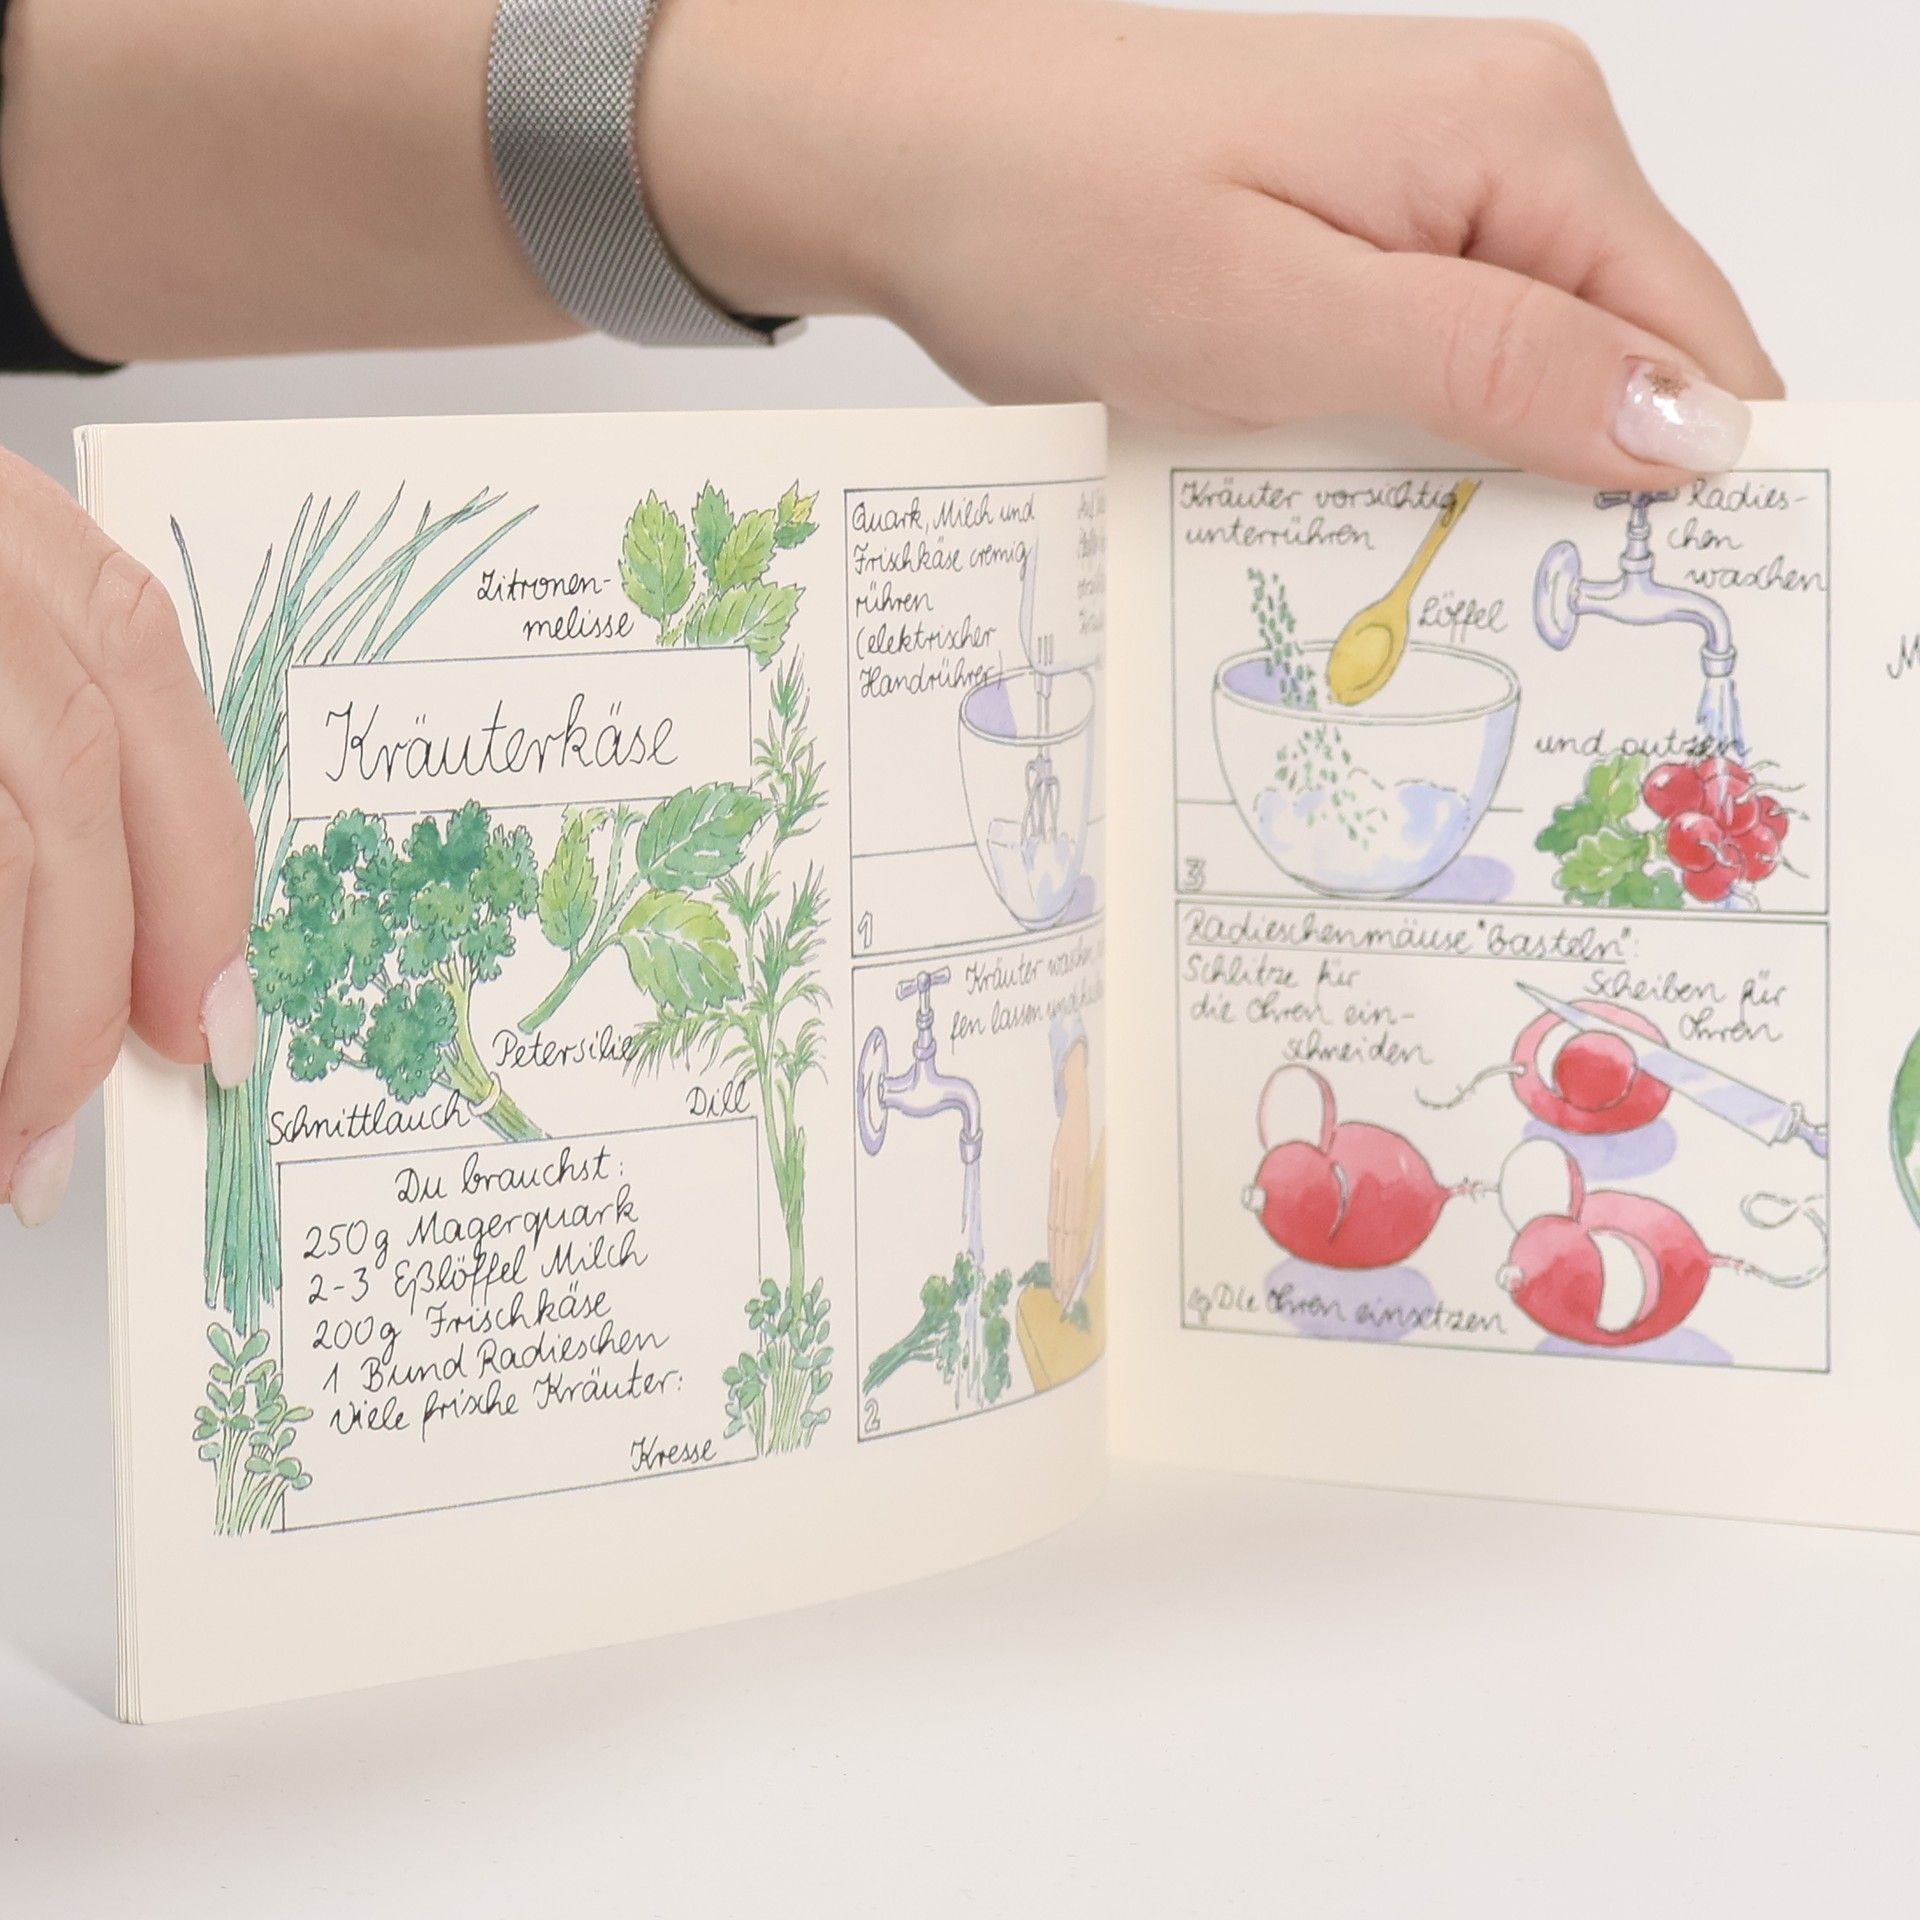 Zitronen-
melisse
Kräuterkäse
Petersilie
Dill
Schnittlauch
Du brauchst:
250g Magerquark
2-3 Eßlöffel Milch
200g Frischkäse
1 Bund Radieschen
Viele frische Kräuter:
Kresse
Quark, Milch und
Frischkäse cremig
rühren
(elektrischer
Handrührer)
1
Kräuter waschen,
fen lassen und
2
Kräuter vorsichtig
unterrühren
Löffel
Radies-
chen
waschen
und putzen
3
Radieschenmäuse "basteln":
Schlitze für
die Ohren ein-
schneiden
Scheiben für
Ohren
Die Ohren einsetzen
M